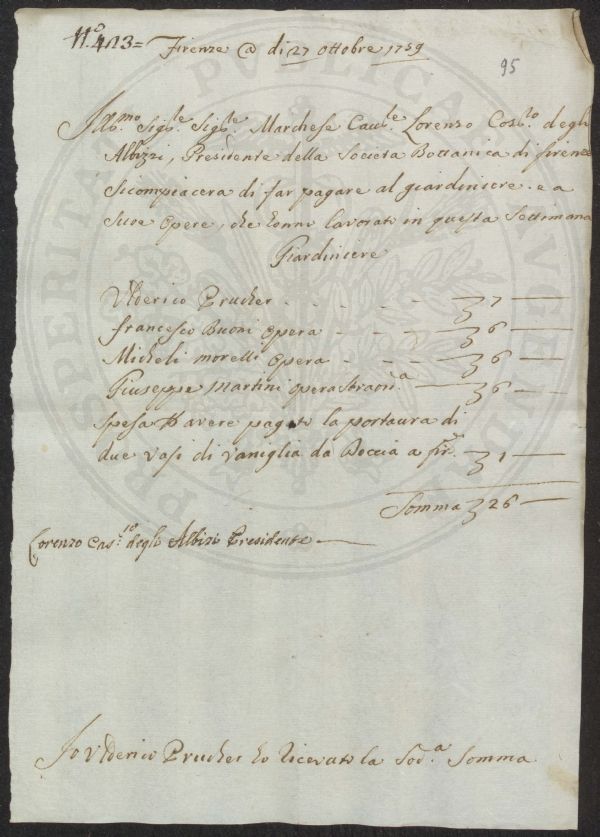 N.º 413= Firenze @ di 27 ottobre 1759
95
Ill.mo Sig.le Sig.le Marchese Cau.le Lorenzo Cos.to degli
Albizzi, Presidente della Società Bottanica di firenze
Si compiacera di far pagare al giardiniere. e a
Sue Opere, che hanno lavorato in questa Settimana
Giardiniere
Vlderico Prucher - - - - - 7 —
francesco Buoni Opera - - - - 6 —
Micheli morelli Opera - - - - 6 —
Giuseppe Martini opera Straord.a — 6 —
spesa avere pagato la portatura di
due vasi di vaniglia da Boccia a fir.e 1 —
Somma 26 —
Lorenzo Cas.to degli Albizi Presidente —
Io Vlderico Prucher ho Ricevuto la Sod.a Somma
PROSPERITATI PVBLICAE AVGENDAE